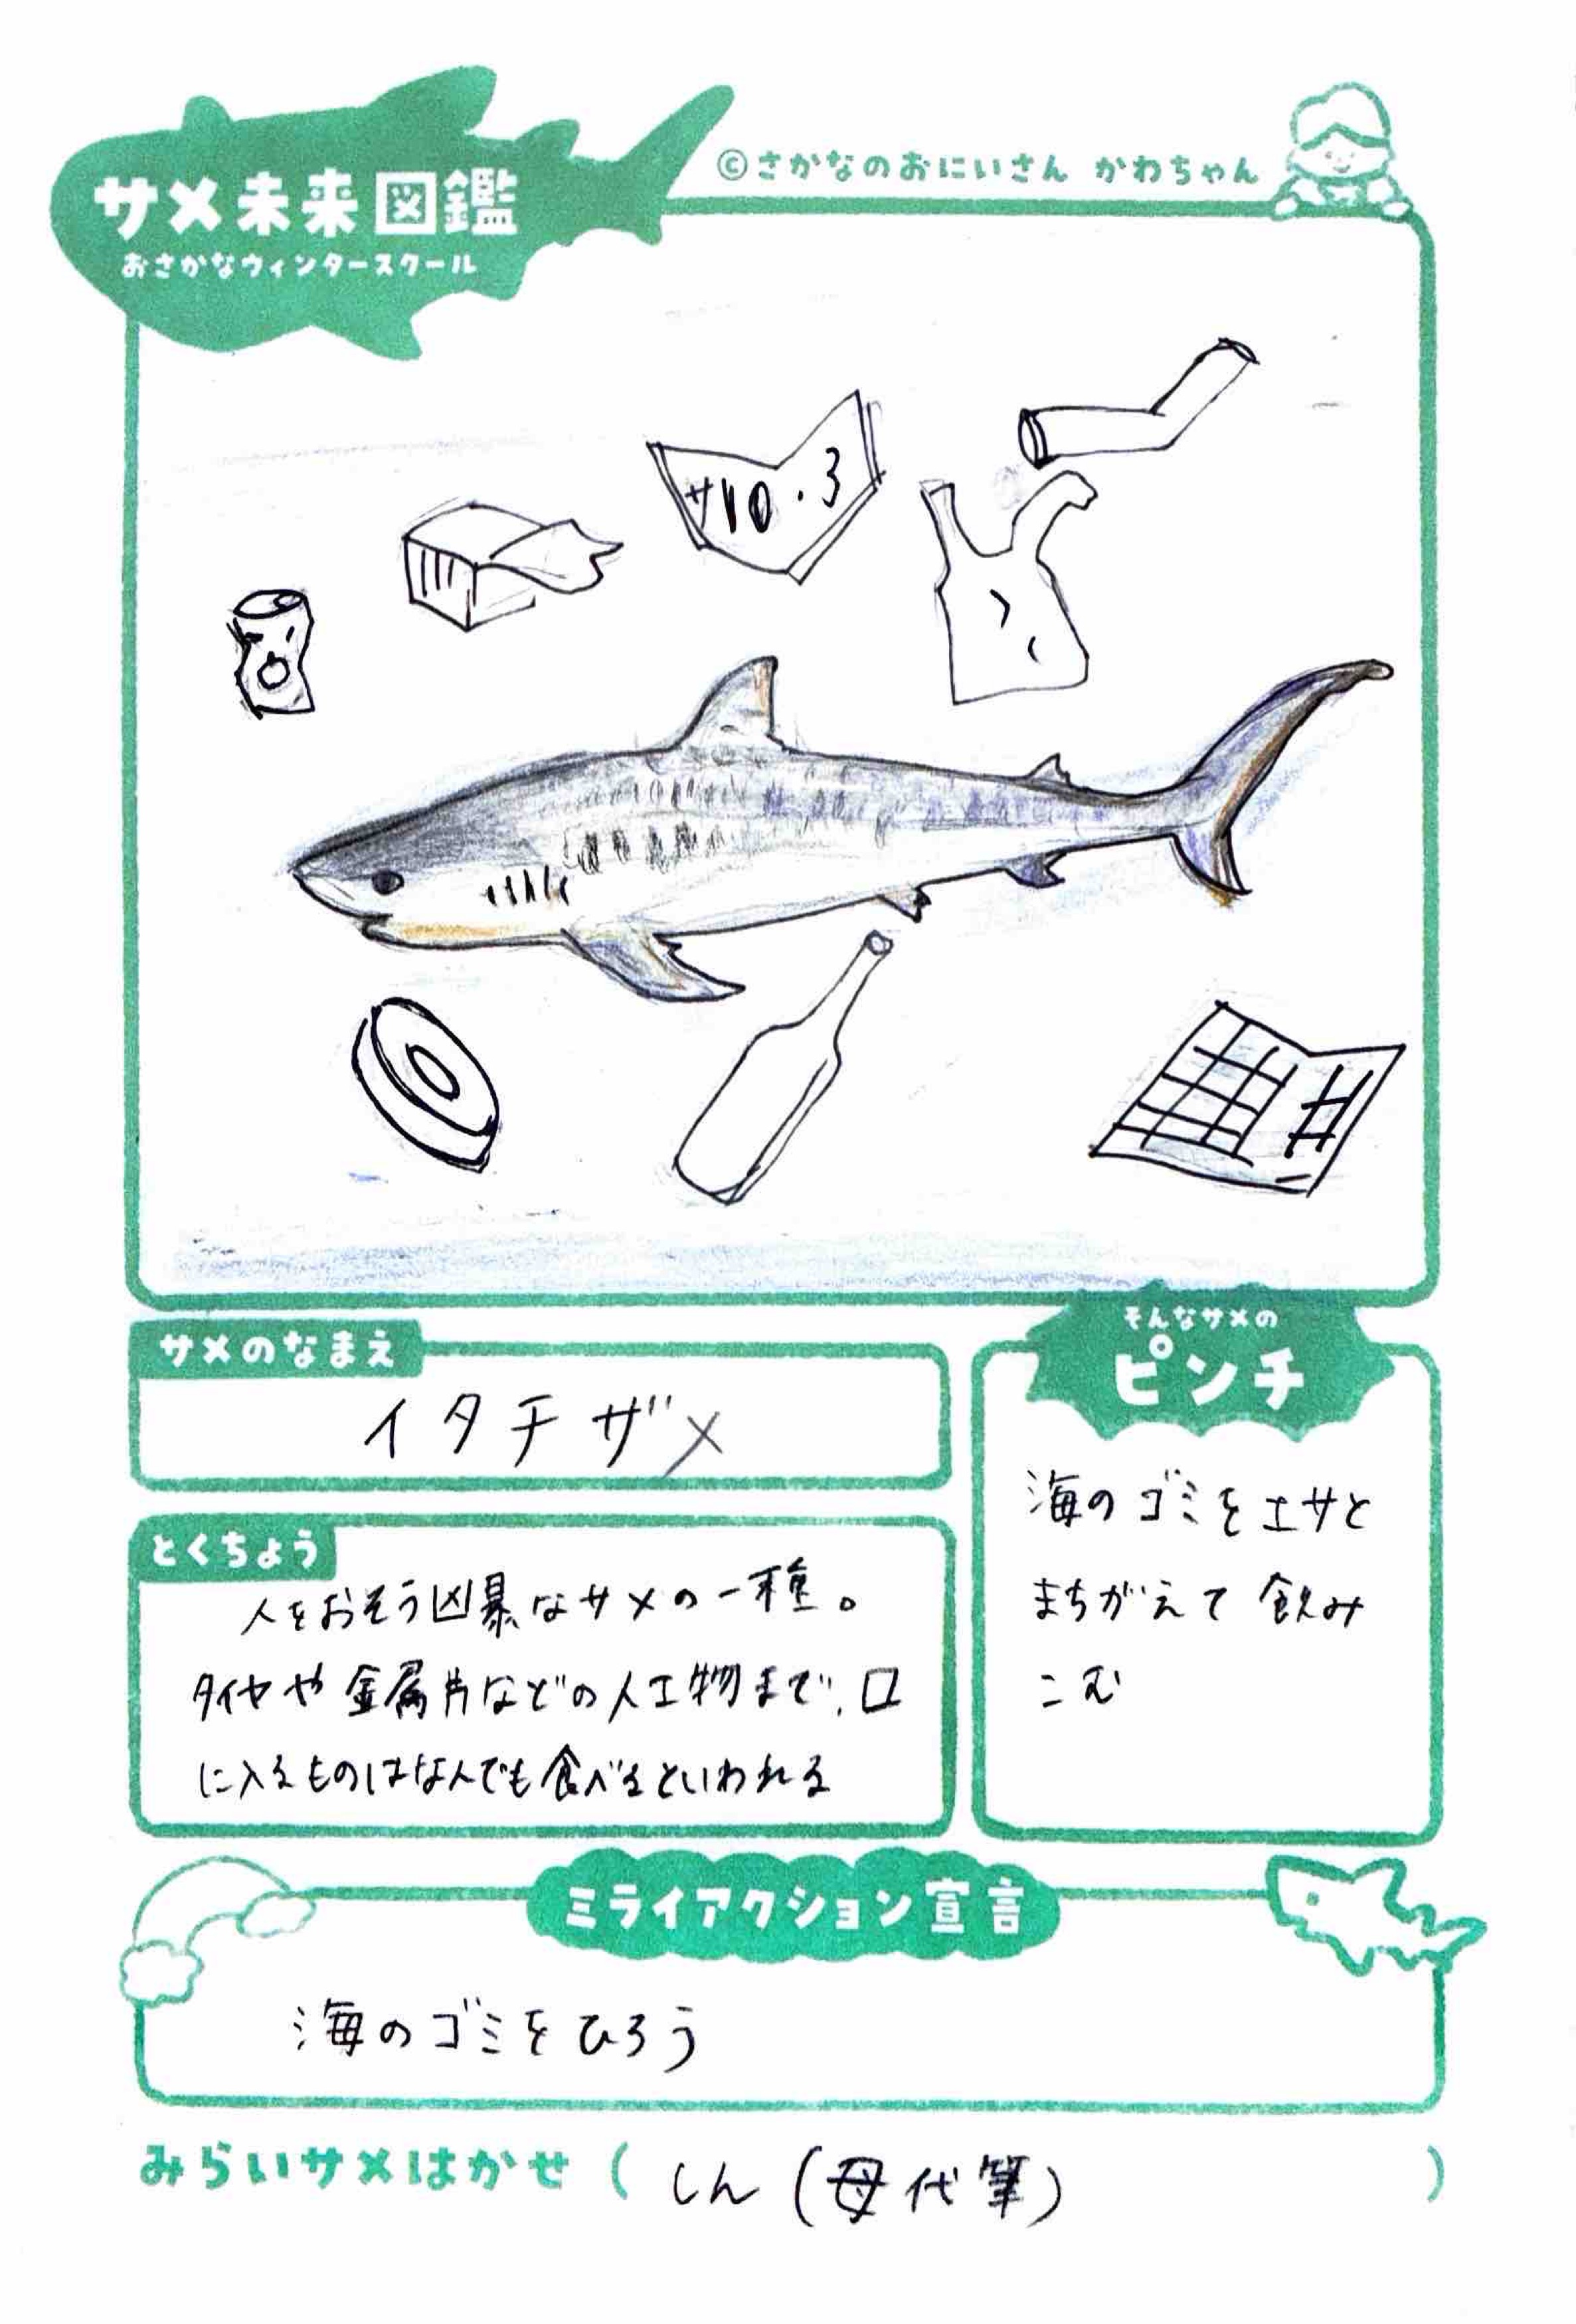 サメ未来図鑑
おさかなウィンタースクール
©さかなのおにいさん かわちゃん
サメのなまえ
イタチザメ
とくちょう
人をおそう凶暴なサメの一種。
タイヤや金属片などの人工物まで、口
に入るものはなんでも食べるといわれる
そんなサメの
ピンチ
海のゴミをエサと
まちがえて飲み
こむ
ミライアクション宣言
海のゴミをひろう
みらいサメはかせ ( しん (母代筆) )